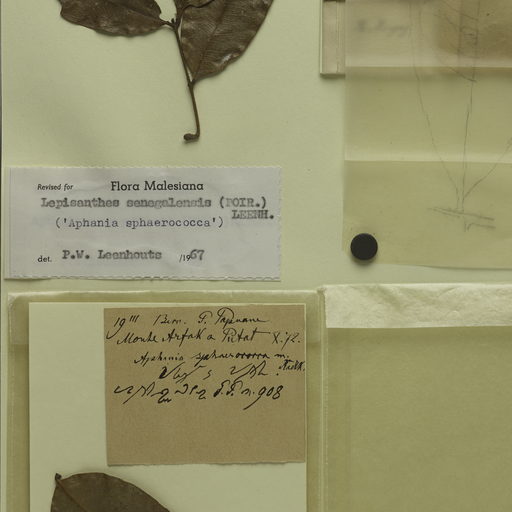 Revised for Flora Malesiana
Lepisanthes senegalensis (POIR.)
LEENH.
('Aphania sphaerococca')
det. P.W. Leenhouts /1967
19 III Becc. P. Papuane
Monte Arfak a Putat X.72.
Aphania sphaerococca m.
Radlk.
P.P. n. 908